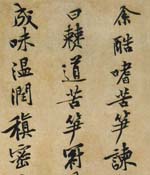 余酷嗜苦笋諫
曰僰道苦笋冠
成味温潤稹密